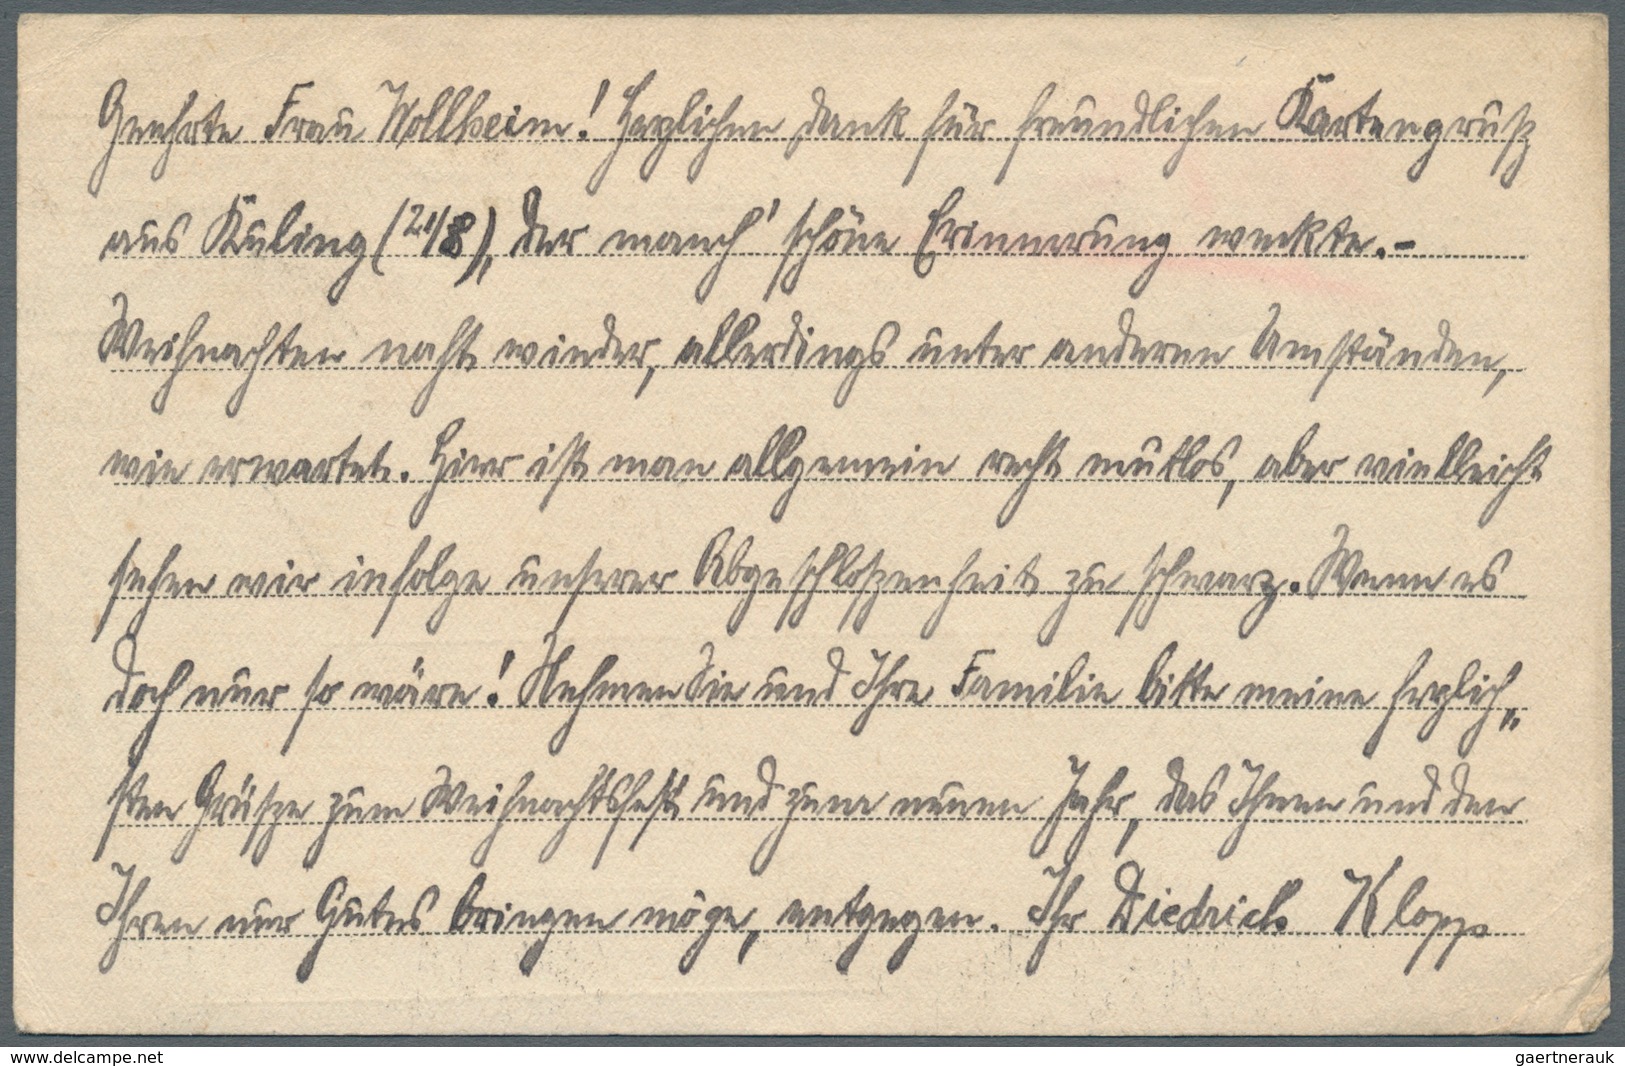 Geehrte Frau Wollheim! Herzlichen Dank für freundlichen Kartengruß
aus Kuling (21/8), der manch' schöne Erinnerung weckte.-
Weihnachten naht wieder, allerdings unter anderen Umständen,
wie erwartet. Hier ist man allgemein recht mutlos, aber vielleicht
sehen wir infolge unserer Abgeschloßenheit zu schwarz. Wenn es
doch nur so wäre! Nehmen Sie und Ihre Familie bitte meine herzlich„
sten Grüße zum Weihnachtsfest und zum neuen Jahr, das Ihnen und den
Ihren nur Gutes bringen möge, entgegen. Ihr Diedrich Klopp
www.delcampe.net
gaertnerauk